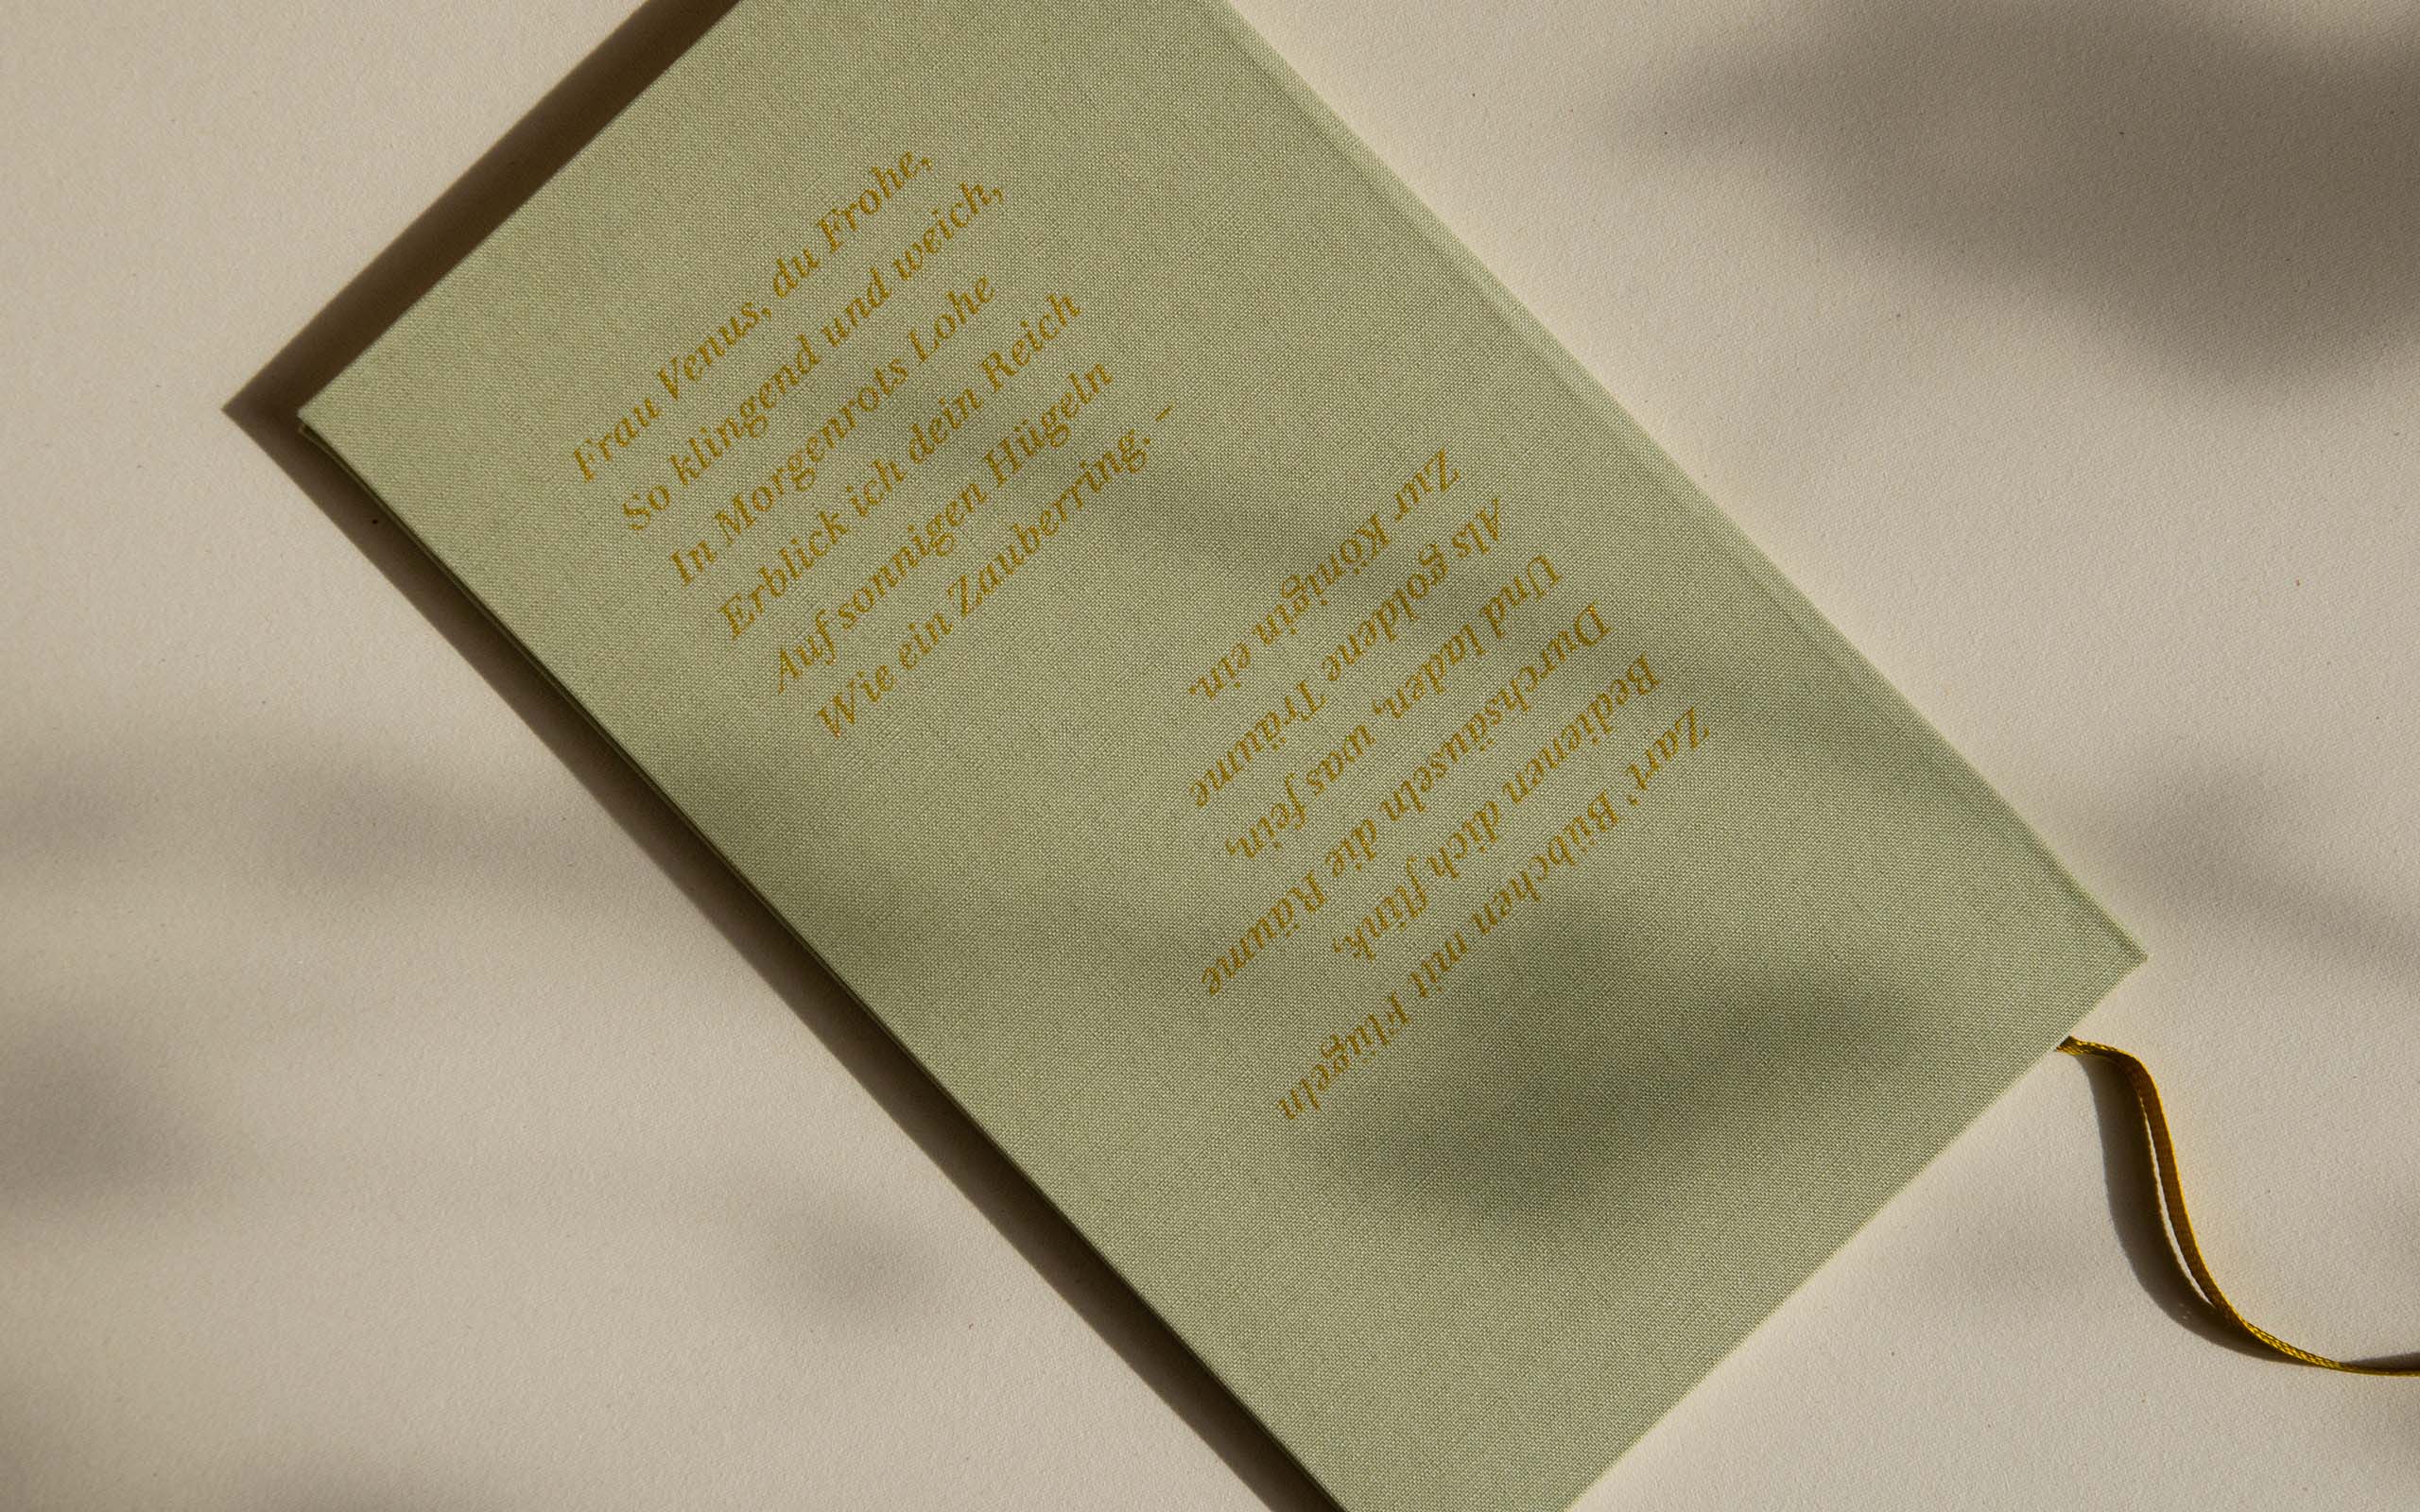 Frau Venus, du Frohe,
So klingend und weich,
In Morgenrots Lohe
Erblick ich dein Reich
Auf sonnigen Hügeln
Wie ein Zauberring. –
Zart’ Bübchen mit Flügeln
Bedienen dich flink,
Durchsäuseln die Räume
Und laden, was fein,
Als goldene Träume
Zur Königin ein.